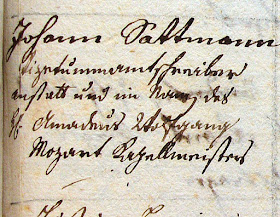 Johann Sattmann
Vizetummamtschreiber
anstatt und im Nam des
H: Amadeus Wolfgang
Mozart Kapellmeisters